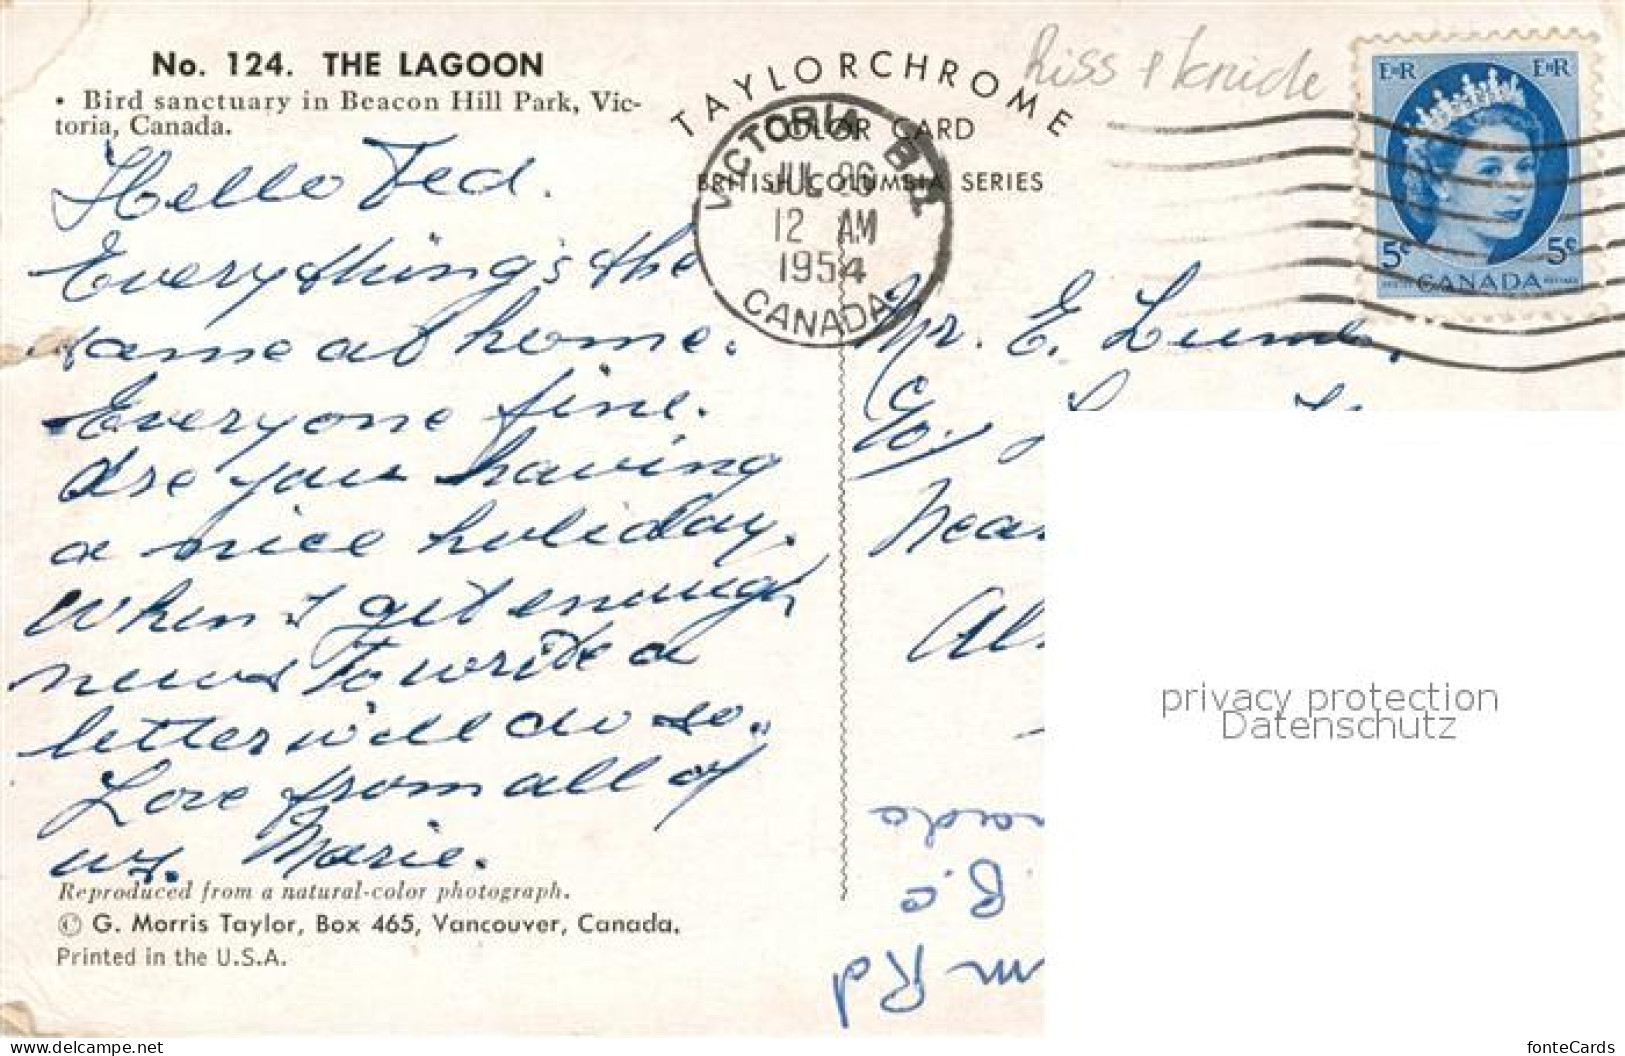 No. 124. THE LAGOON
• Bird sanctuary in Beacon Hill Park, Vic-
toria, Canada.
Hello Ted.
Everything's the
same at home.
Everyone fine.
Are you having
a nice holiday.
When I get enough
news to write a
letter will do so.
Love from all of
us. Marie.
Reproduced from a natural-color photograph.
© G. Morris Taylor, Box 465, Vancouver, Canada.
Printed in the U.S.A.
TAYLORCHROME
COLOR CARD
BRITISH COLUMBIA SERIES
VICTORIA
JUL 26
12 AM
1954
CANADA
E II R E II R
5c 5c
CANADA
Mr. E.
c/o.
Near
B.C
Rd
privacy protection
Datenschutz
www.delcampe.net
fonteCards